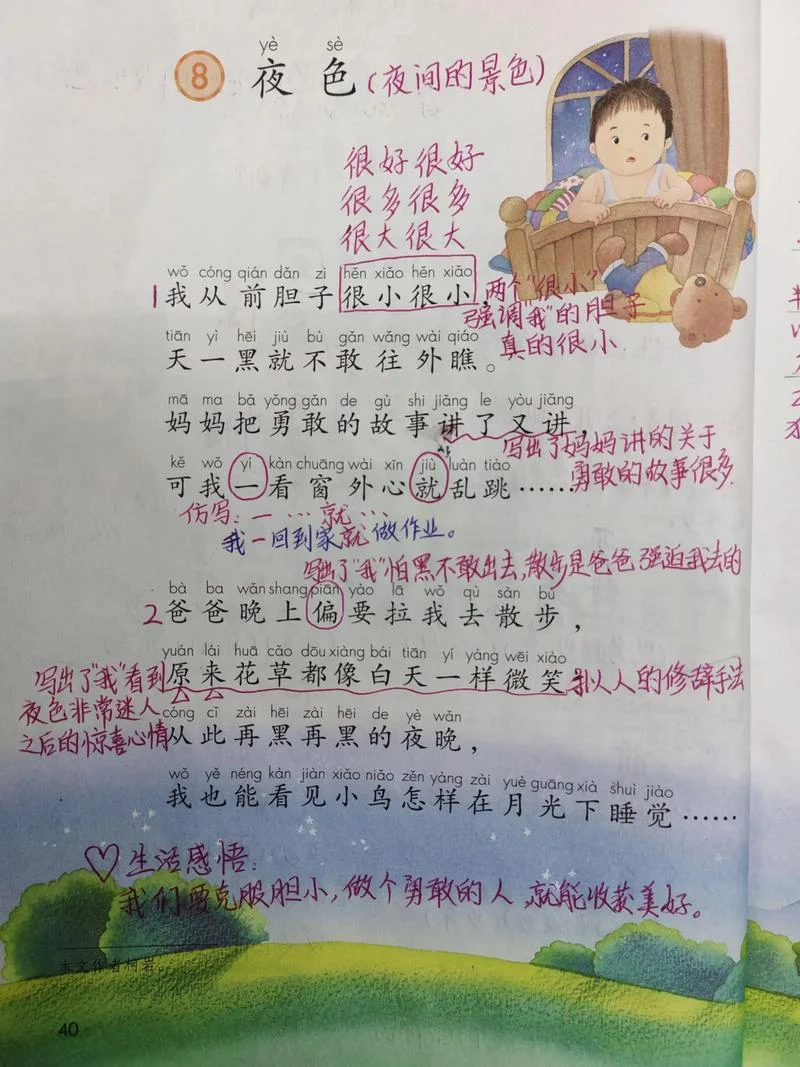 yè sè
8 夜色(夜间的景色)
很好很好
很多很多
很大很大
wǒ cóng qián dǎn zi hěn xiǎo hěn xiǎo
1 我从前胆子很小很小,
两个"很小"
强调"我"的胆子
真的很小
tiān yì hēi jiù bù gǎn wǎng wài qiáo
天一黑就不敢往外瞧。
mā ma bǎ yǒng gǎn de gù shi jiǎng le yòu jiǎng
妈妈把勇敢的故事讲了又讲,
写出了妈妈讲的关于
勇敢的故事很多
kě wǒ yí kàn chuāng wài xīn jiù luàn tiào
可我一看窗外心就乱跳……
仿写:一…就…
我一回到家就做作业。
写出了"我"怕黑不敢出去,散步是爸爸强迫我去的
bà ba wǎn shang piān yào lā wǒ qù sàn bù
2 爸爸晚上偏要拉我去散步,
yuán lái huā cǎo dōu xiàng bái tiān yí yàng wēi xiào
原来花草都像白天一样微笑
拟人的修辞手法
写出了"我"看到
夜色非常迷人
之后的惊喜心情
cóng cǐ zài hēi zài hēi de yè wǎn
从此再黑再黑的夜晚,
wǒ yě néng kàn jiàn xiǎo niǎo zěn yàng zài yuè guāng xià shuì jiào
我也能看见小鸟怎样在月光下睡觉……
♡生活感悟:
我们要克服胆小,做个勇敢的人,就能收获美好。
本文作者柯岩。
40